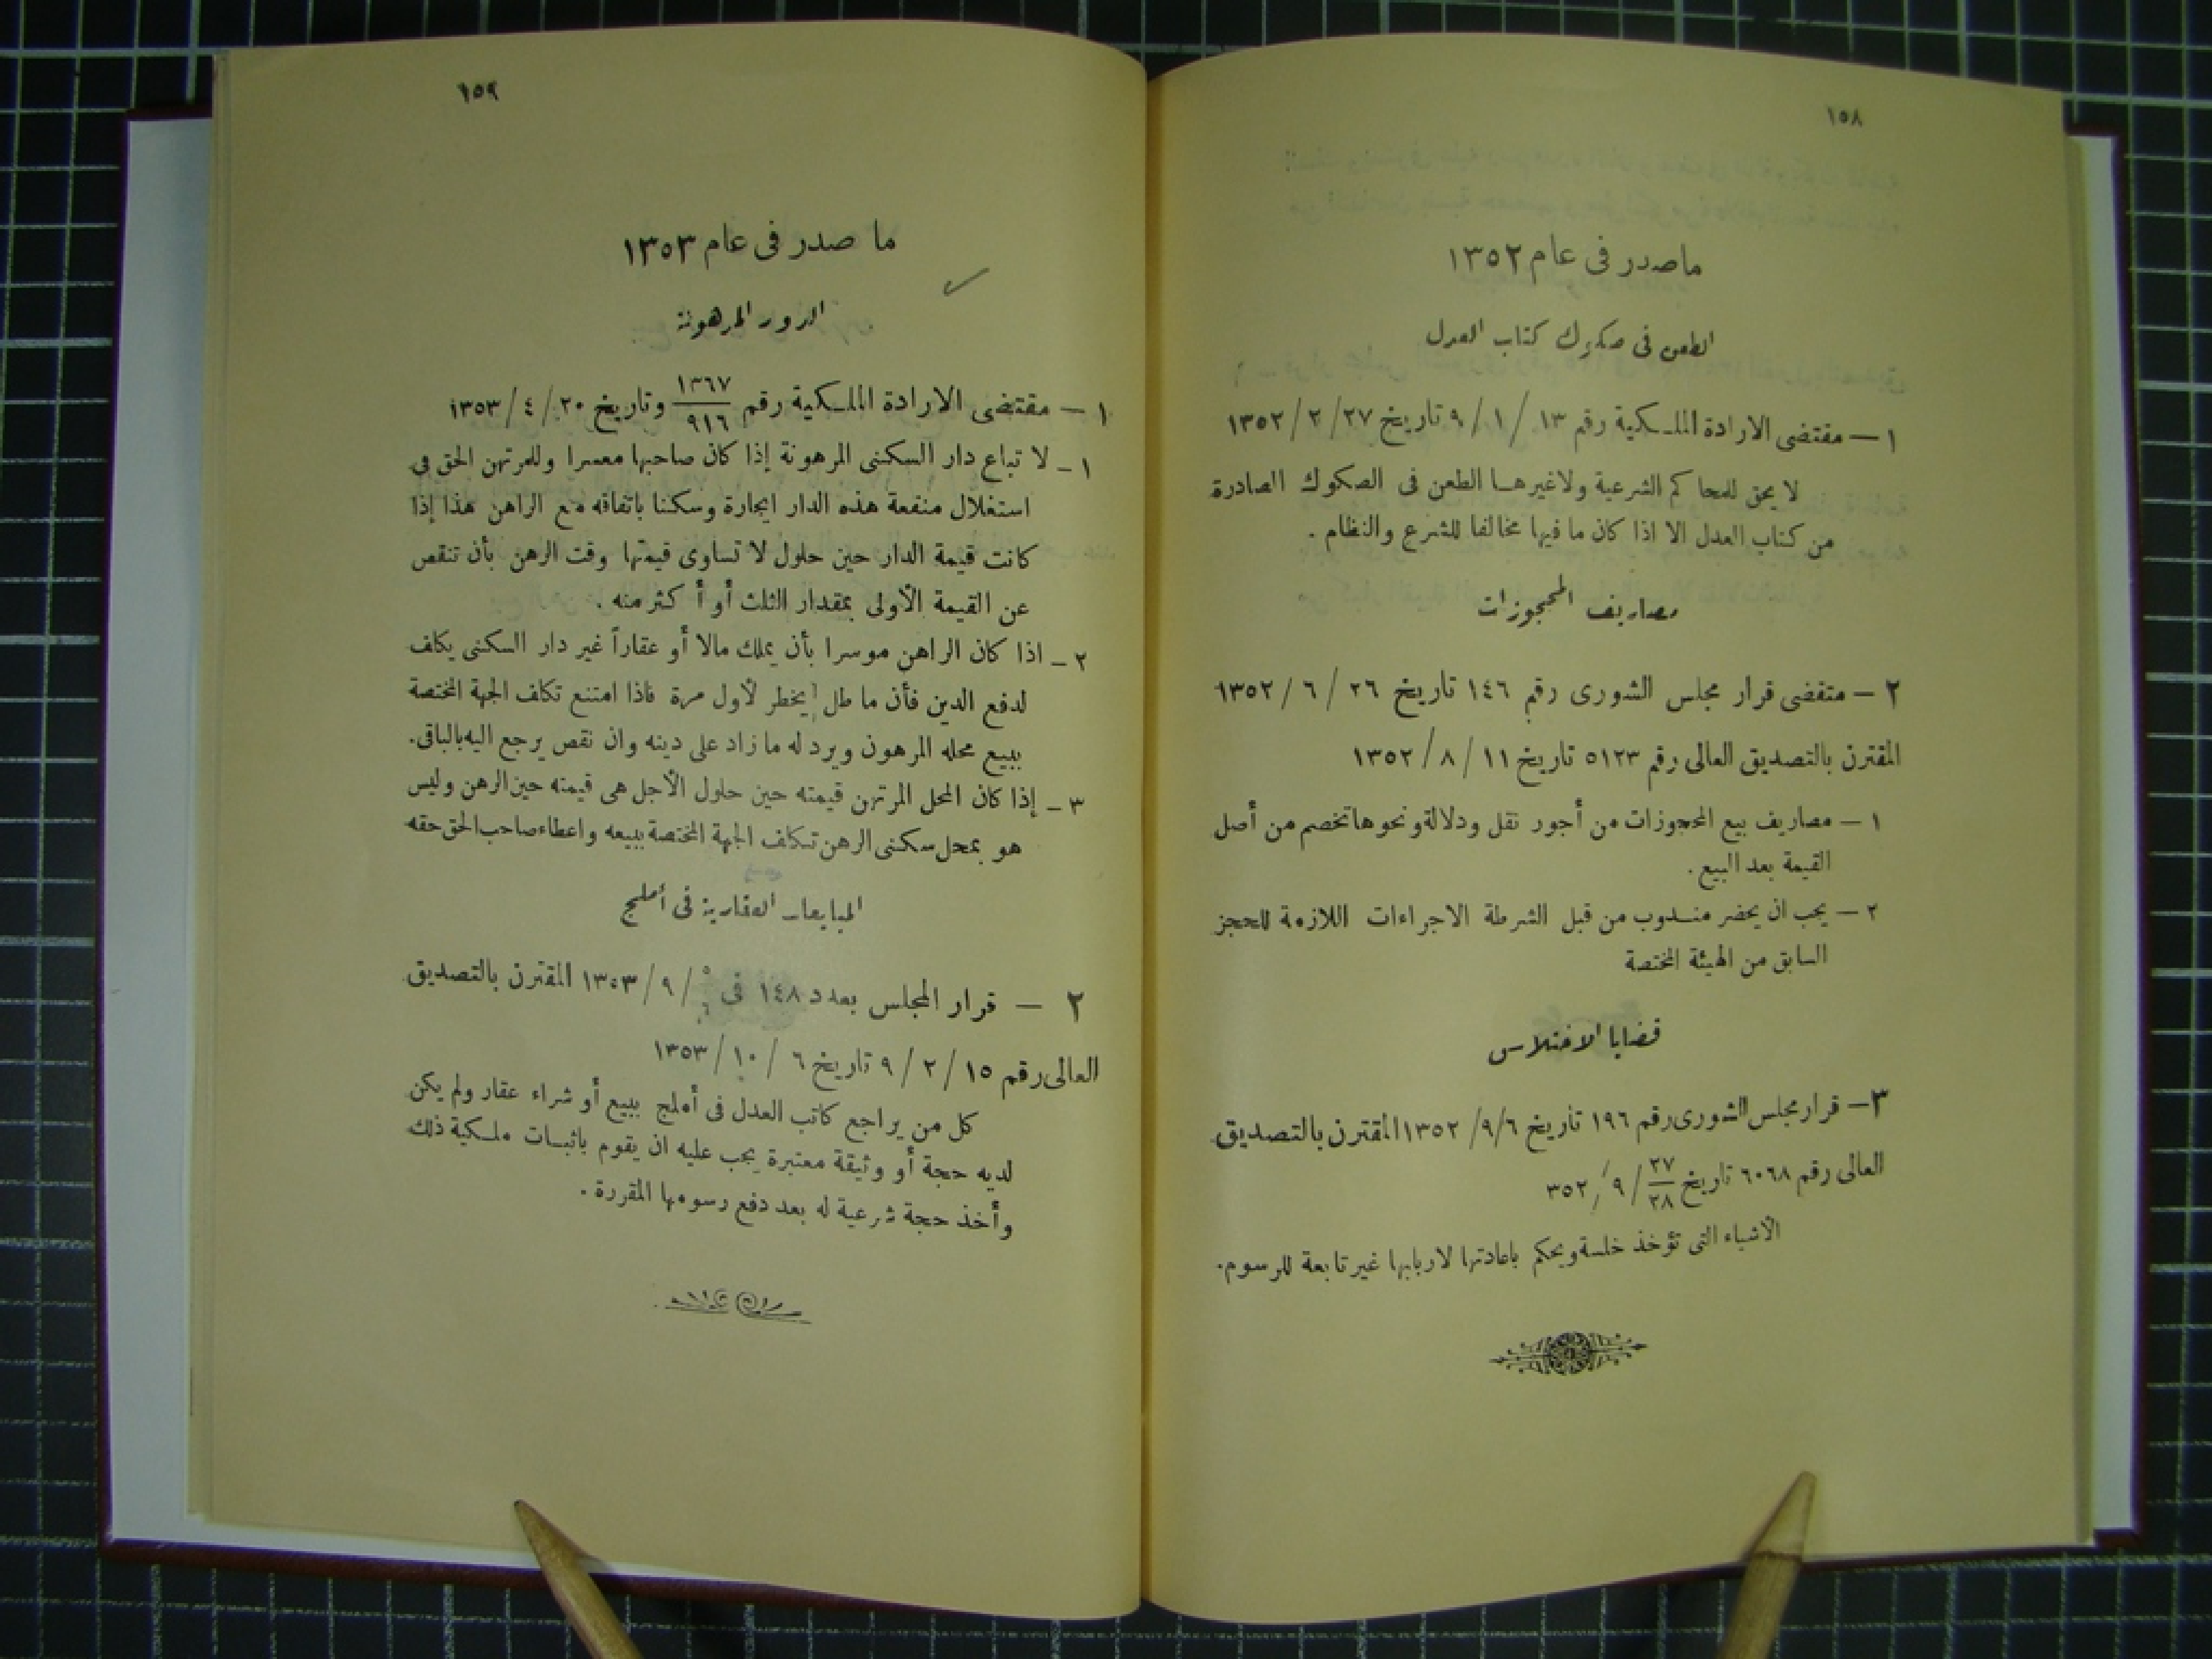 ١٥٨
ماصدر فى عام ١٣٥٢
الطعن فى صكوك كتاب العدل
١ — مقتضى الارادة الملكية رقم ١٣ / ١ / ٩ تاريخ ٢٧ / ٢ / ١٣٥٢
لا يحق للمحاكم الشرعية ولاغيرها الطعن فى الصكوك الصادرة
من كتاب العدل الا اذا كان ما فيها مخالفا للشرع والنظام .
مصاريف المحجوزات
٢ — متقضى قرار مجلس الشورى رقم ١٤٦ تاريخ ٢٦ / ٦ / ١٣٥٢
المقترن بالتصديق العالى رقم ٥١٢٣ تاريخ ١١ / ٨ / ١٣٥٢
١ — مصاريف بيع المحجوزات من أجور نقل ودلالة ونحوها تخصم من أصل
القيمة بعد البيع .
٢ — يجب ان يحضر مندوب من قبل الشرطة الاجراءات اللازمة للحجز
السابق من الهيئة المختصة
قضايا الاختلاس
٣ — قرار مجلس الشورى رقم ١٩٦ تاريخ ٦ / ٩ / ١٣٥٢ المقترن بالتصديق
العالى رقم ٦٠٦٨ تاريخ ٢٧/٢٨ / ٩ / ٣٥٢
الأشياء التى تؤخذ خلسة ويحكم باعادتها لاربابها غير تابعة للرسوم .
١٥٩
ما صدر فى عام ١٣٥٣
الدور المرهونة
١ — مقتضى الارادة الملكية رقم ١٣٦٧/٩١٦ وتاريخ ٢٠ / ٤ / ١٣٥٣
١ — لا تباع دار السكنى المرهونة إذا كان صاحبها معسرا وللمرتهن الحق فى
استغلال منفعة هذه الدار ايجارة وسكنا باتفاقه مع الراهن هذا إذا
كانت قيمة الدار حين حلول لا تساوى قيمتها وقت الرهن بأن تنقص
عن القيمة الأولى بمقدار الثلث أو أكثر منه .
٢ — اذا كان الراهن موسرا بأن يملك مالا أو عقاراً غير دار السكنى يكلف
لدفع الدين فأن ماطل يخطر لأول مرة فاذا امتنع تكلف الجهة المختصة
ببيع محله المرهون ويرد له ما زاد على دينه وان نقص يرجع اليه بالباقى .
٣ — إذا كان المحل المرتهن قيمته حين حلول الأجل هى قيمته حين الرهن وليس
هو بمحل سكنى الرهن تكلف الجهة المختصة ببيعه واعطاء صاحب الحق حقه
المبايعات العقارية فى أملج
٢ — قرار المجلس بعدد ١٤٨ فى / ٩ / ١٣٥٣ المقترن بالتصديق
العالى رقم ١٥ / ٢ / ٩ تاريخ ٦ / ١٠ / ١٣٥٣
كل من يراجع كاتب العدل فى أملج ببيع أو شراء عقار ولم يكن
لديه حجة أو وثيقة معتبرة يجب عليه ان يقوم باثبات ملكية ذلك
وأخذ حجة شرعية له بعد دفع رسومها المقررة .